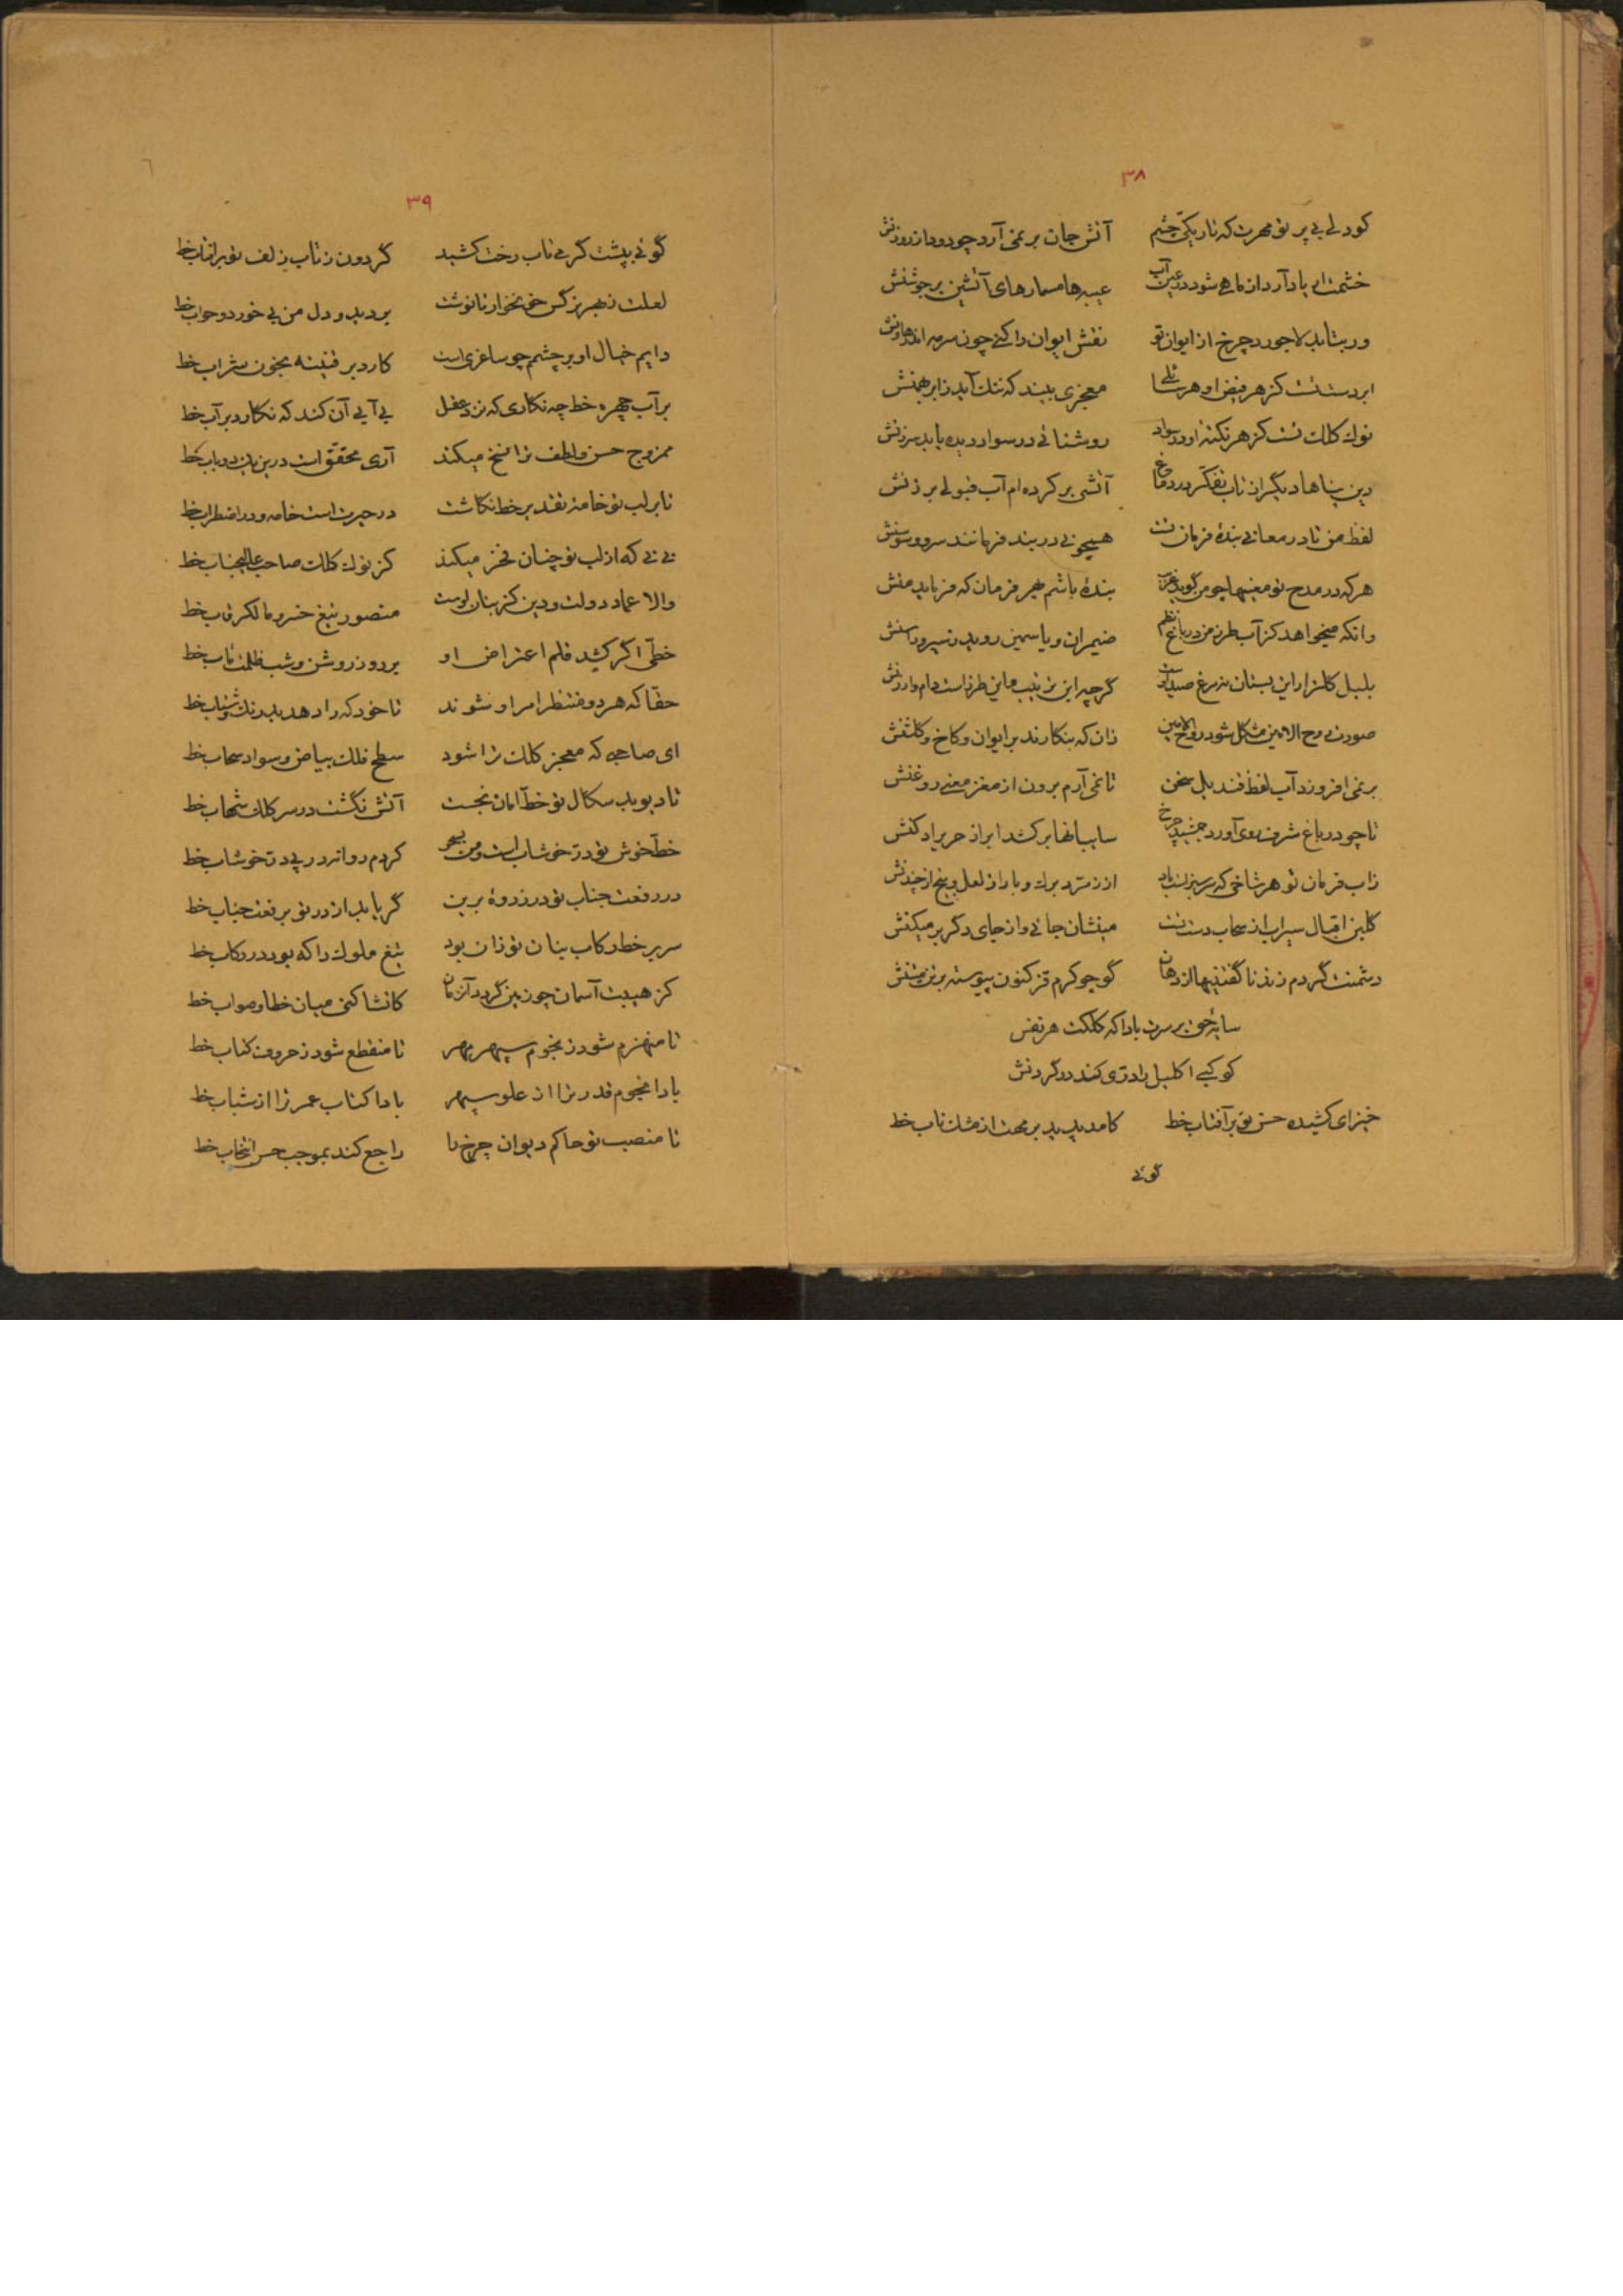 ۳۸
کو دلی بی پرتو مهرت که تاریکی چشم آتش جان برنمی آرد چو دود از روزنش
خشمت ار یاد آرد از ماهی شود در عین آب عیبه‌ها مسمارهای آتشین بر جوشنش
ور بتابد لاجورد چرخ از ایوان تو نقش ایوان را کنی چون سرمه اندر هاونش
ابر دست تست کز هر فیض او هر سائلی معجزی بیند که ننگ آید ز ابر بهمنش
نوک کلک تست کز هر نکته او در سواد روشنائی در سواد دیده یابد سرزنش
دین پناها دیگران تاب تفکر در دماغ آتشی بر کرده‌ام آب قبولی بر زنش
لفظ من تا در معانی بنده فرمان تست هیچونی در بند فرمانند سرو و سوسنش
هرکه در مدح تو معنیها چو من گوید غریب بنده باشم بهر فرمان که فرماید منش
وانکه میخواهد کز آب طرز من در باغ نظم ضیمران و یاسمین روید ز سیر و راسنش
بلبل گلزار این بستان نه مرغ صید اوست گرچه این ترتیب و این طرز است دام و ارزنش
صورت روح الامین مشکل شود روح الامین زان که بنگارند بر ایوان و کاخ و گلشنش
برنمی افروزد آب لفظ قندیل سخن تا نمی آرم برون از مغز معنی روغنش
تا چو در باغ شرف روی آورد جمشید چرخ سایبانها بر کشد ابر از حریر ادکنش
ز آب فرمان تو هر شاخی که سرسبز است باد از زمرد برک و بار از لعل و بیخ از چندنش
گلبن اقبال سیراب از سحاب دست تست مینشان جائی و از جای دگر بر میکنش
دشمنت گر دم زند ناگفتنیها از دهان گو چو کرم قز کنون پیوسته بر تن میتنش
سایه حق بر سرت بادا که کلکت هر نفس
کوکبی اکلیل را دری کند در گردنش
خیز ای کشیده حسن تو بر آفتاب خط کامد پدید بر مهت از مشک ناب خط
گوئی
۳۹
گوئی بپشت گرمی تاب رخت کشید گردون ز تاب زلف تو بر آفتاب خط
لعلت ز بهر نرگس خونخوار تا نوشت بر دید و دل من بی خورد و خواب خط
دایم خیال او بر چشمم چو ساغری است کارد بر قنینه بخون شراب خط
بر آب چهره خط چه نگاری که نزد عقل بی آبی آن کند که نگارد بر آب خط
ممزوج حسن و لطف ترا نسخ میکند آری محقق است درین باب خط
تا بر لب تو خامه تقدیر خط نگاشت در حیرت است خامه و در اضطراب خط
نی نی که از لب تو چنان فخر میکند کز نوک کلک صاحب عالیجناب خط
والا عماد دولت و دین کز بنان اوست منصور تیغ خسرو مالک رقاب خط
خطی اگر کشد قلم اعتراض او بر روز روشن و شب ظلمت مآب خط
حقا که هر دو منتظر امر او شوند تا خود که را دهد بدرنگ و شتاب خط
ای صاحبی که معجز کلک ترا شود سطح فلک بیاض و سواد سحاب خط
تا دیو بد سگال تو خط امان نجست آتش نگشت در سر کلک شهاب خط
خط خوش تو در خوشاب است و من بسحر کردم روانه در پی در خوشاب خط
در رفعت جناب تو در ذروه برین گر یابد از در تو بر رفعت جناب خط
سر بر خط رکاب بنان تو زان بود تیغ ملوک را که بود در رکاب خط
کز هیبت آسمان چو زمین گردد آن زمان کانشا کنی میان خطا و صواب خط
تا منهزم شود ز نجوم سپهر مهر تا منقطع شود ز حروف کتاب خط
بادا نجوم قدر ترا از علو سپهر بادا کتاب عمر ترا از شباب خط
تا منصب تو حاکم دیوان چرخ را راجع کند بموجب حسن انتخاب خط